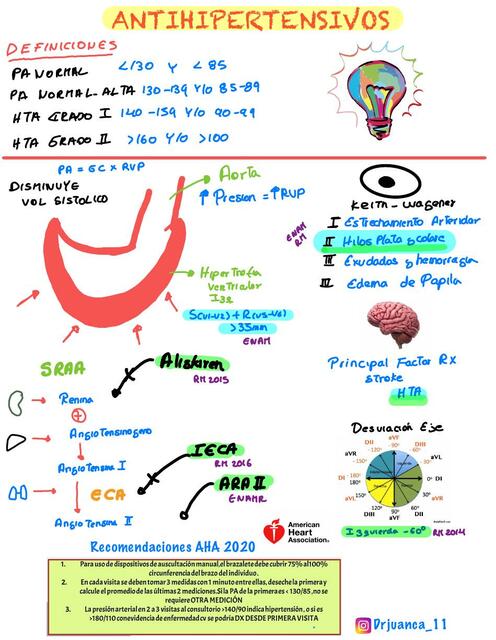 ANTIHIPERTENSIVOS
DEFINICIONES
PA NORMAL <130 Y < 85
PA NORMAL-ALTA 130-139 Y/O 85-89
HTA GRADO I 140-159 Y/O 90-99
HTA GRADO II >160 Y/O >100
PA = GC x RVP
DISMINUYE
VOL SISTOLICO
Aorta
↑ Presion = ↑ RVP
Hipertrofia
ventricular
Izq
S(V1-V2) + R(V5-V6)
>35mm
ENAM
Keith-Wagener
ENAM
RM
I Estrechamiento Arteriolar
II Hilos Plata y cobre
III Exudados y hemorragia
IIII Edema de Papila
Principal Factor Rx
stroke
HTA
SRAA
Aliskiren
RM 2015
Renina
Angiotensinogeno
Angiotensina I
ECA
Angiotensina II
IECA
RM 2016
ARA II
ENAMR
Desviación Eje
DII aVF DIII
-120° -90° -60°
aVR aVL
-150° -30°
DI 180° 0° DI
-180°
aVL 150° 30° aVR
120° 90° 60°
DIII aVF DII
Izquierda -60° RM 2014
American
Heart
Association.
Recomendaciones AHA 2020
1. Para uso de dispositivos de auscultación manual,el brazalete debe cubrir 75% al 100%
circunferencia del brazo del individuo.
2. En cada visita se deben tomar 3 medidas con 1 minuto entre ellas, deseche la primera y
calcule el promedio de las últimas 2 mediciones.Si la PA de la primera es < 130/85 ,no se
requiere OTRA MEDICIÓN
3. La presión arterial en 2 a 3 visitas al consultorio >140/90 indica hipertensión , o si es
>180/110 con evidencia de enfermedad cv se podría DX DESDE PRIMERA VISITA
Drjuanca_11